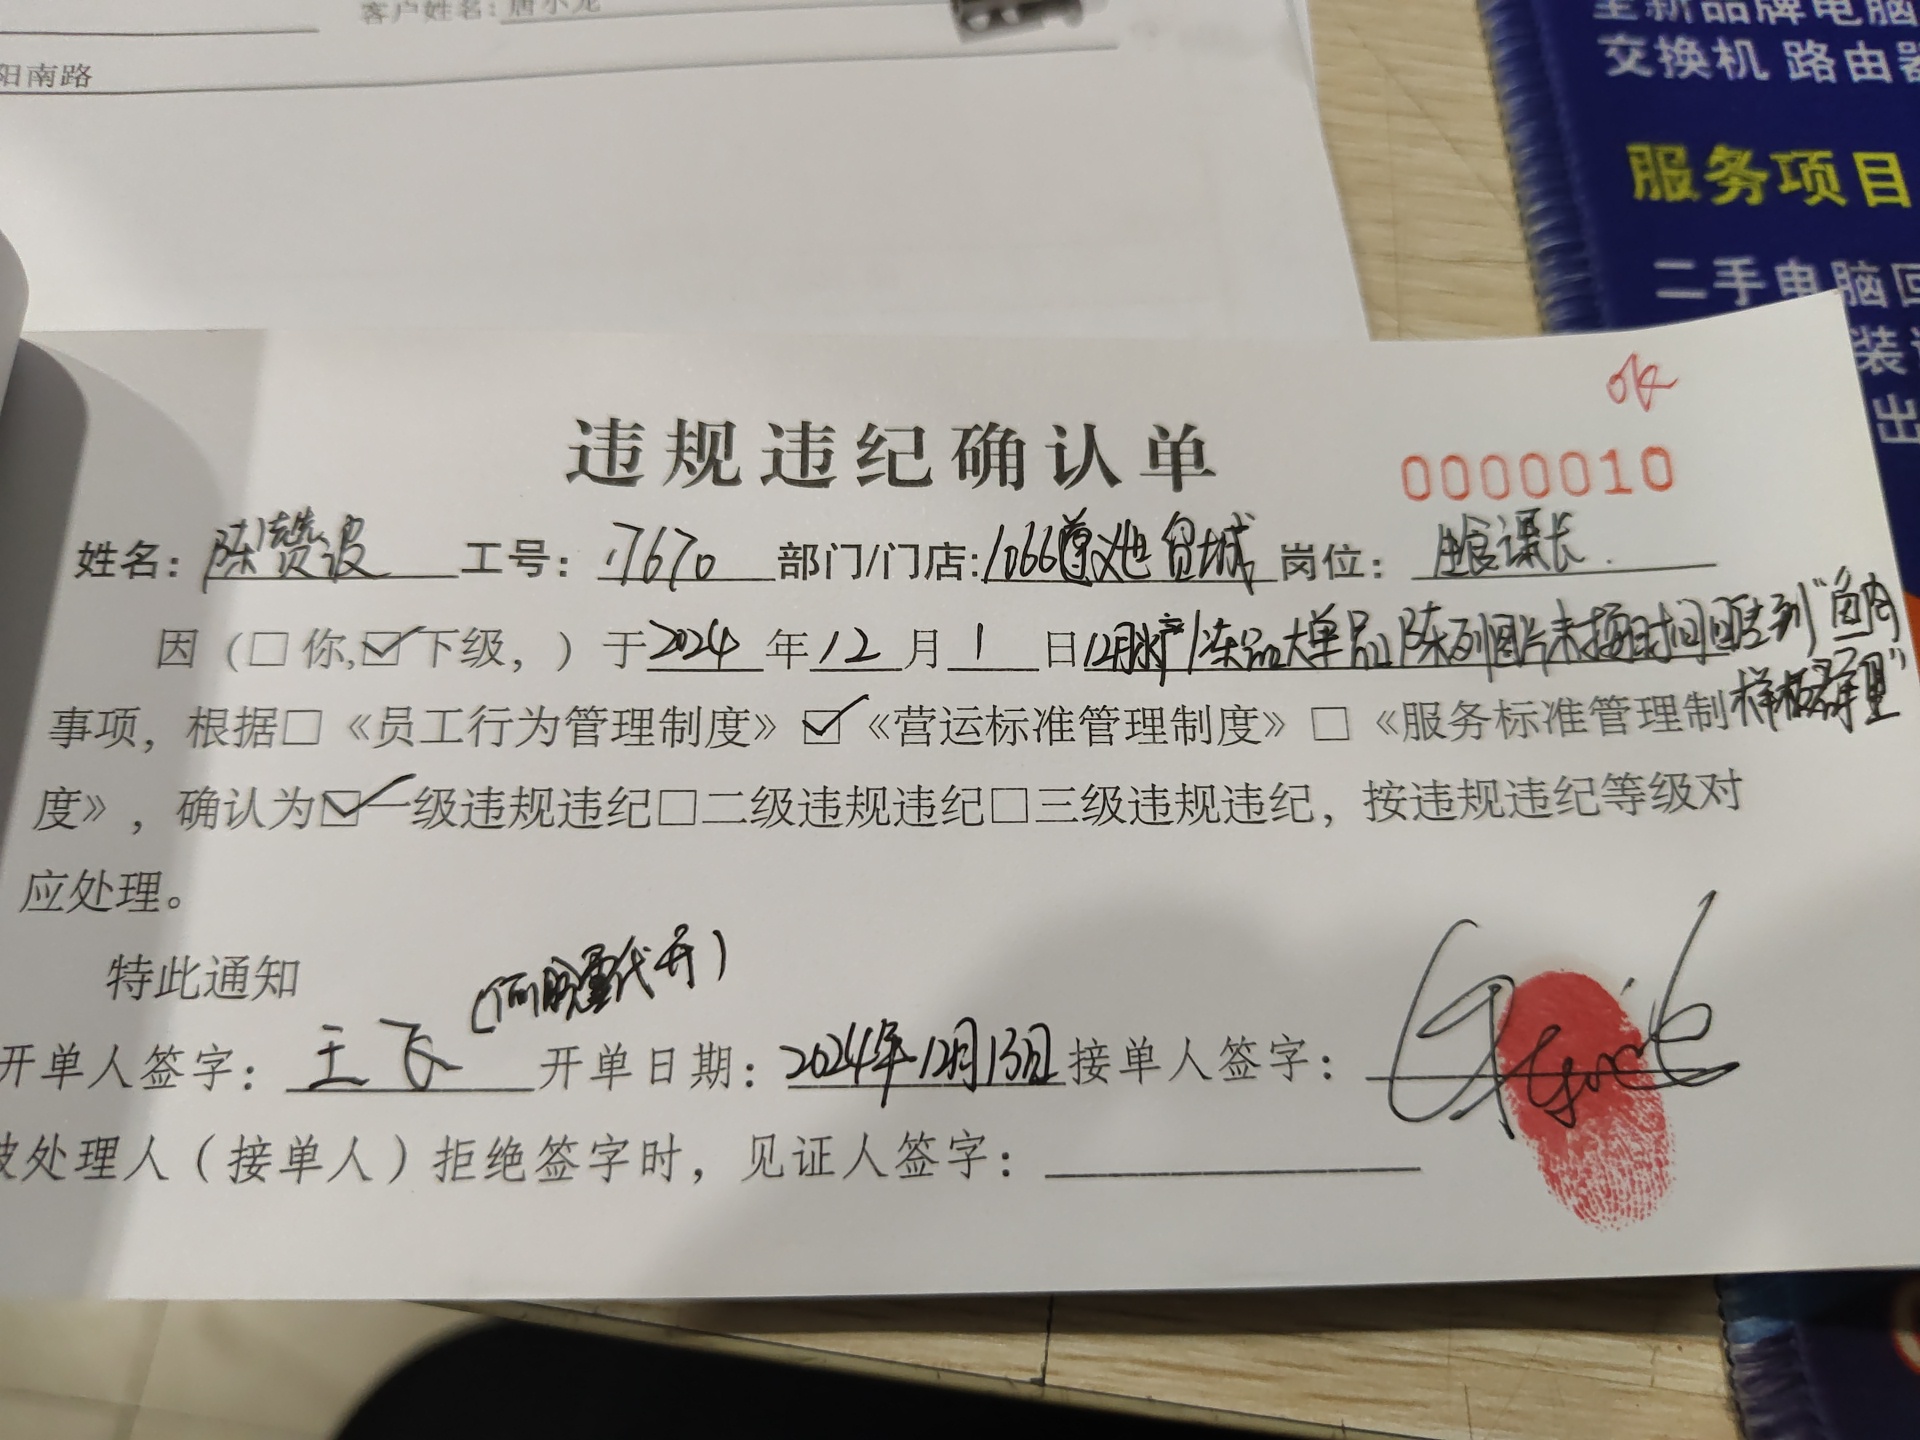 客户姓名：唐小龙
阳南路
全新品牌电脑
交换机 路由器
服务项目
二手电脑回
装
出
ok
违规违纪确认单
0000010
姓名：陈赞波 工号：17670 部门/门店:1066遵义地贸城 岗位：生食课长
因（□你,☑下级，）于2024年12月1日12月水产/冻品大单品陈列图片未按时间回传到“鱼肉
事项，根据□《员工行为管理制度》☑《营运标准管理制度》□《服务标准管理制 样板群里”
度》，确认为☑一级违规违纪□二级违规违纪□三级违规违纪，按违规违纪等级对
应处理。
特此通知
代开）
开单人签字：王飞 开单日期：2024年12月13日 接单人签字：
被处理人（接单人）拒绝签字时，见证人签字：